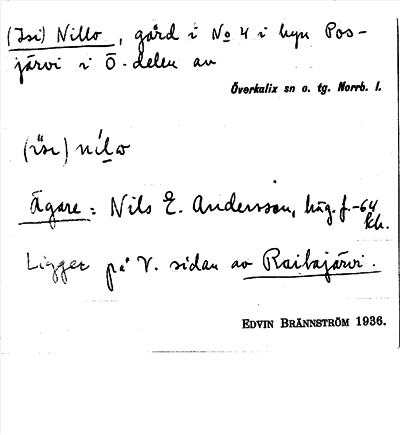 (Isi) Nillo, gård i No 4 i byn Pos-
järvi i Ö. delen av
Överkalix sn o. tg. Norrb. l.
(isi) nílo
Ägare: Nils E. Andersson, häg. f. -64
kh.
Ligger på V. sidan av Raitajärvi.
EDVIN BRÄNNSTRÖM 1936.